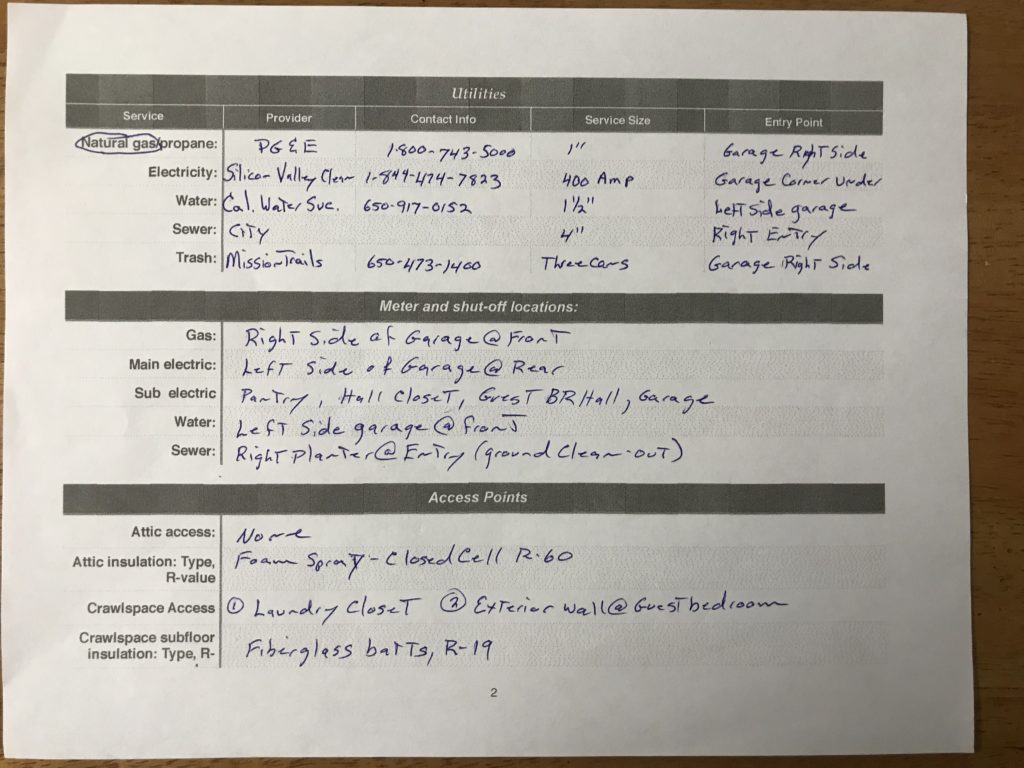 Utilities
Service Provider Contact Info Service Size Entry Point
Natural gas/propane: PG&E 1-800-743-5000 1" Garage Right Side
Electricity: Silicon Valley Clean 1-844-474-7823 400 Amp Garage Corner Under
Water: Cal. Water Svc. 650-917-0152 1½" Left Side garage
Sewer: City 4" Right Entry
Trash: Mission Trails 650-473-1400 Three Cans Garage Right Side
Meter and shut-off locations:
Gas: Right Side of Garage @ Front
Main electric: Left Side of Garage @ Rear
Sub electric Pantry, Hall Closet, Guest BR Hall, Garage
Water: Left Side garage @ front
Sewer: Right Planter @ Entry (ground Clean-out)
Access Points
Attic access: None
Attic insulation: Type, Foam Spray - Closed Cell R-60
R-value
Crawlspace Access ① Laundry Closet ② Exterior wall @ Guest bedroom
Crawlspace subfloor
insulation: Type, R- Fiberglass batts, R-19
2